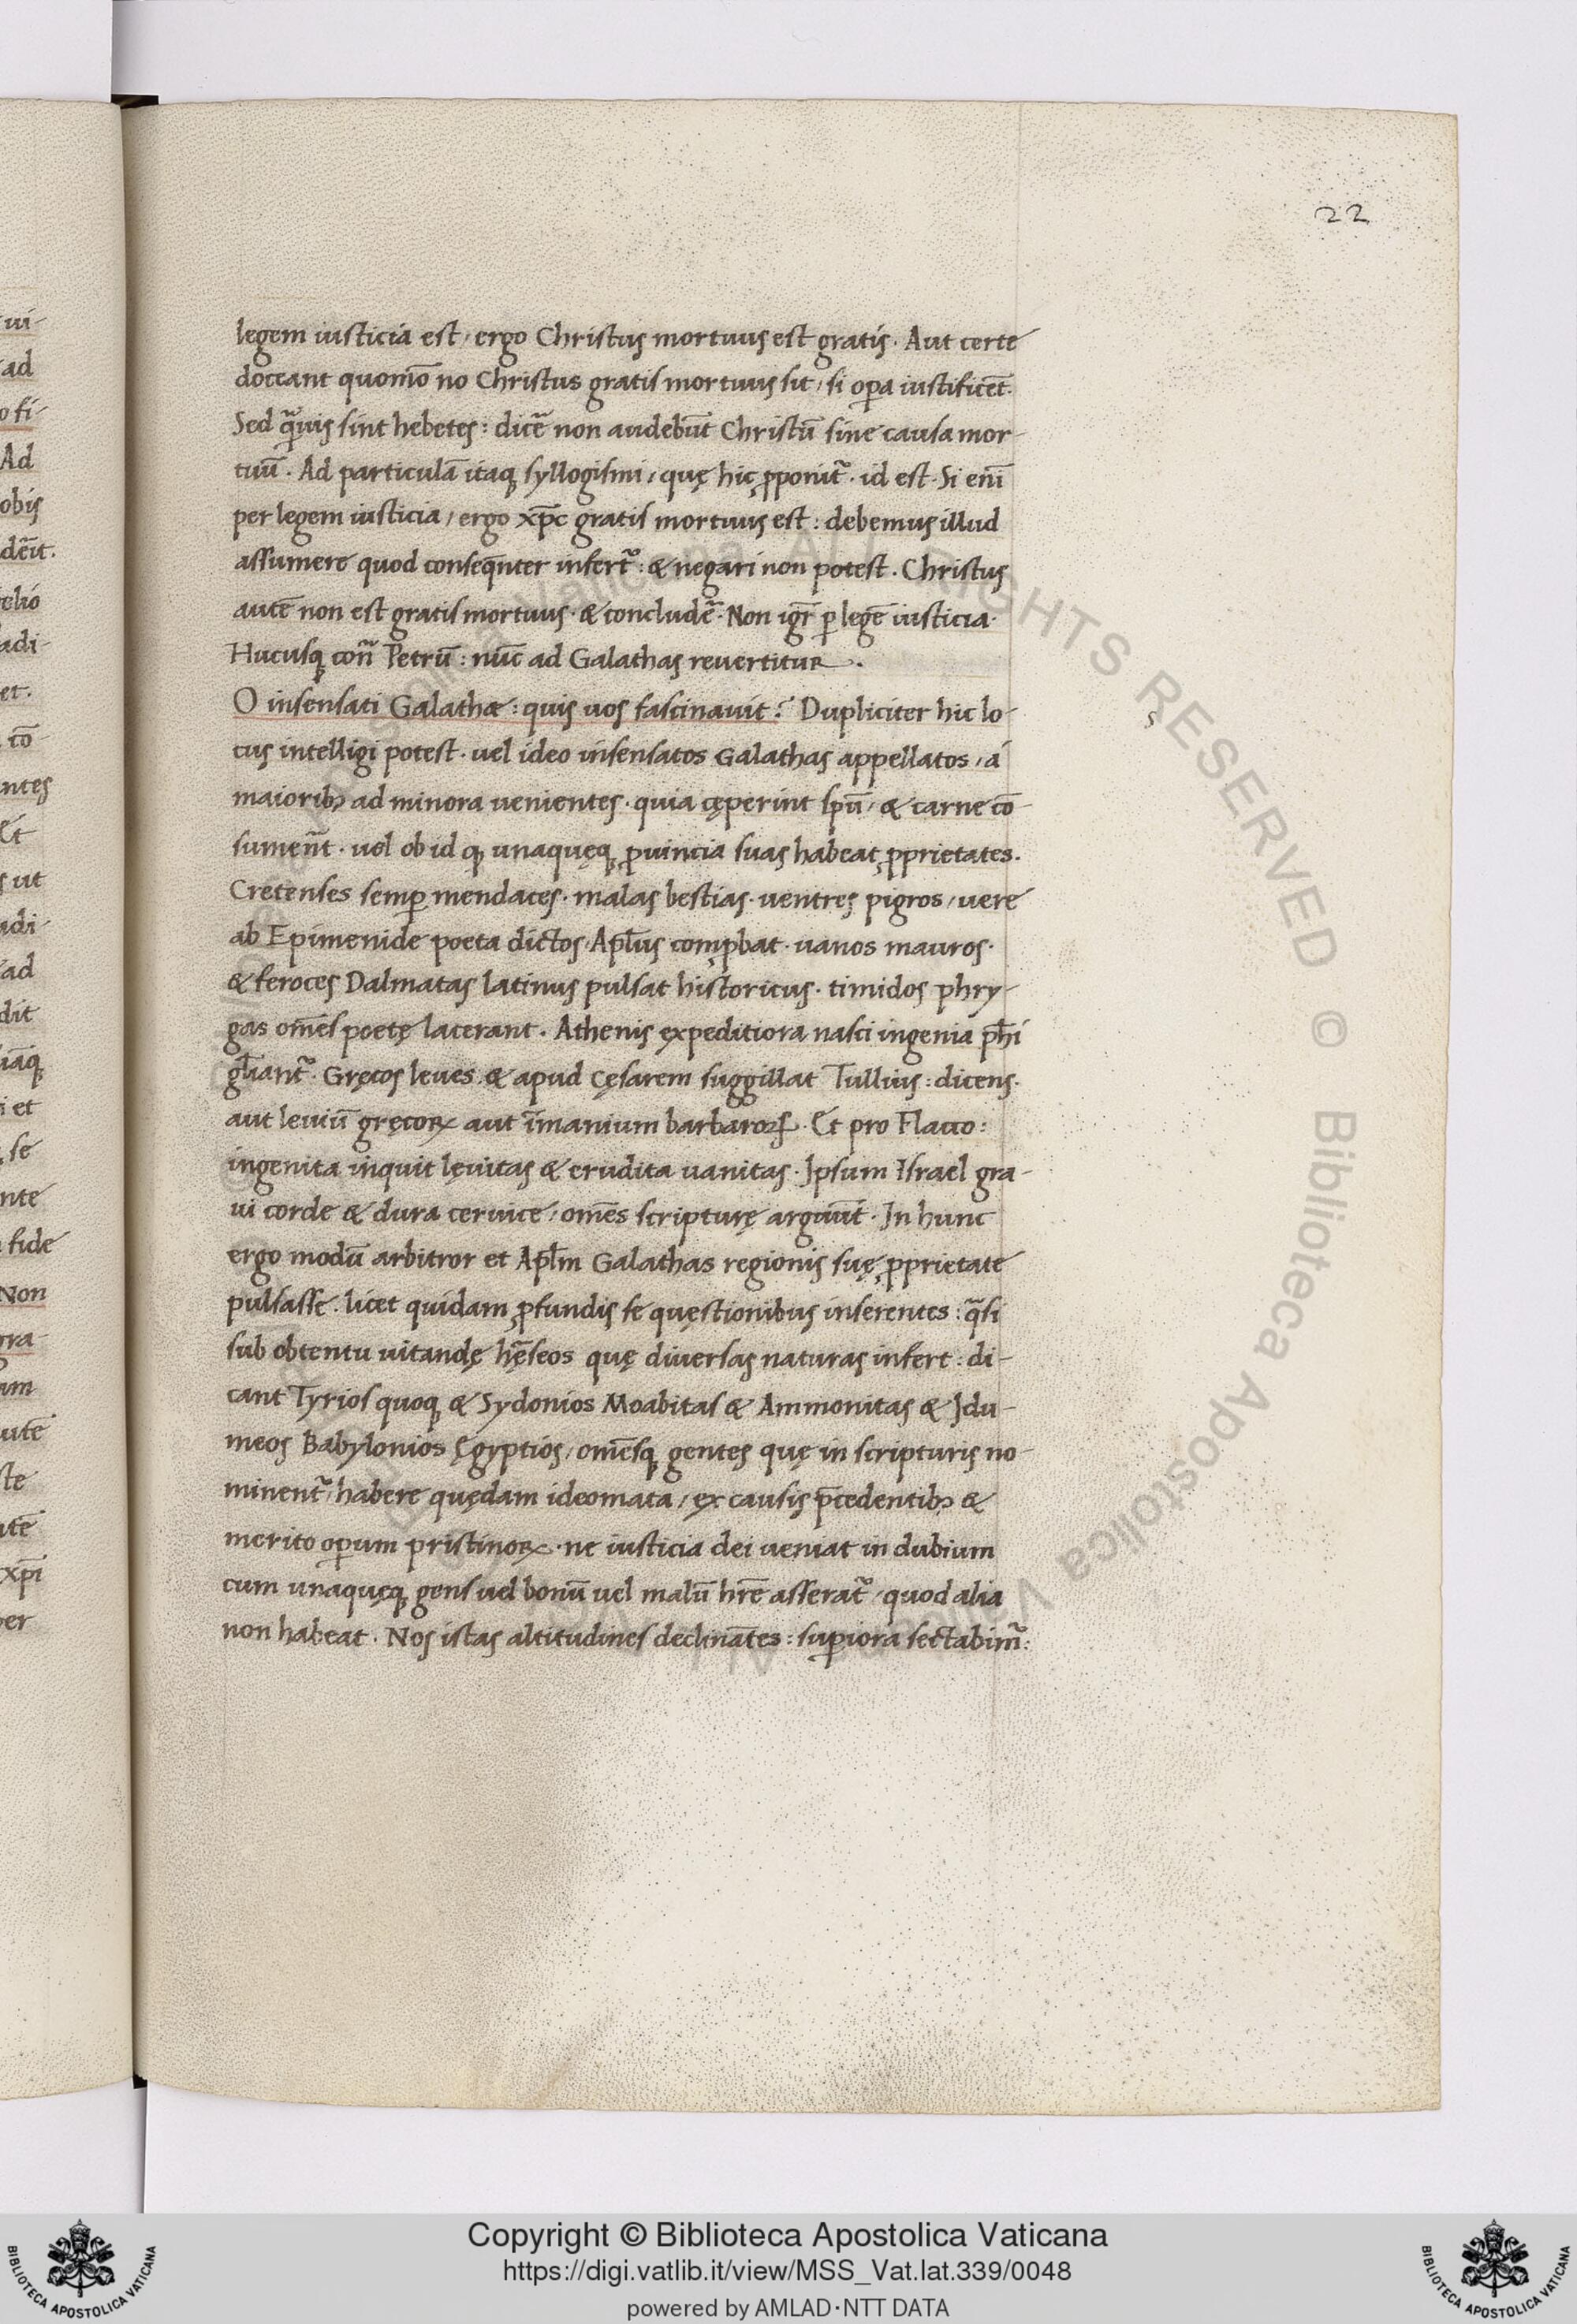 22
legem iusticia est, ergo Christus mortuus est gratis. Aut certe
doceant quomo᷎ no Christus gratis mortuus sit, si oꝑa iustificēt.
Sed q̃uis sint hebetes: dicē non audebūt Christū sine causa mor-
tuū. Ad particulā itaqꝫ syllogismi, quę hic ꝓponit᷑. id est. Si eni᷎
per legem iusticia, ergo xp̄c gratis mortuus est: debemus illud
assumere quod conseq̄nter infert᷑: & negari non potest. Christus
autē non est gratis mortuus. & concludē. Non igr̄ ꝑ legē iusticia.
Hucusqꝫ cont̃ Petrū: nūc ad Galathas reuertitur.
O insensati Galathæ: quis uos fascinauit? Dupliciter hic lo-
cus intelligi potest. uel ideo insensatos Galathas appellatos, á
maioribꝫ ad minora uenientes. quia cęperint spū, & carne cō-
sument᷑. uel ob id qꝫ unaquęqꝫ ꝓuincia suas habeat ꝓprietates.
Cretenses semꝑ mendaces. malas bestias. uentres pigros, uere
ab Epimenide poeta dictos, Apl̄us comꝓbat. uanos mauros.
& feroces Dalmatas latinus pulsat historicus. timidos phry-
gas om̄es poetę lacerant. Athenis expeditiora nasci ingenia ph̄i
gl̄iant᷑. Gręcos leues. & apud Cęsarem suggillat Tullius: dicens.
aut leuiū gręcoꝝ aut īmanium barbaroꝝ. Et pro Flacco:
ingenita inquit lęuitas & erudita uanitas. Ipsum Israel gra-
ui corde & dura ceruice, om̄es scripturę arguūt. In hunc
ergo modū arbitror et Apl̄m Galathas regionis suę ꝓprietate
pulsasse. licet quidam ꝓfundis se quęstionibus inserentes: q̃si
sub obtentu uitandę hęs̄eos quę diuersas naturas infert: di-
cant Tyrios quoqꝫ & Sydonios Moabitas & Ammonitas & Idu-
meos Babylonios Ęgyptios, om̄esqꝫ gentes quę in scripturis no-
minent᷑, habere quędam ideomata, ex causis p̄cedentibꝫ &
merito oꝑum pristinoꝝ. ne iusticia dei ueniat in dubium
cum unaquęqꝫ gens uel bonū uel malū hr̄e asserat᷑, quod alia
non habeat. Nos istas altitudines declinātes: suꝑiora sectabim᷑:
Copyright © Biblioteca Apostolica Vaticana
https://digi.vatlib.it/view/MSS_Vat.lat.339/0048
powered by AMLAD·NTT DATA